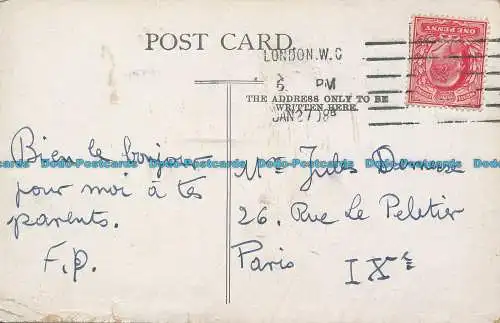 POST CARD
LONDON.W.C
5. PM
JAN 27 08
THE ADDRESS ONLY TO BE
WRITTEN HERE.
ONE PENNY
Bien le bonjour
pour moi à tes
parents.
F.p.
Jules
26, Rue Le Peletier
Paris
IXe
Postcards Postcards Postcards Postcards Postcards Postcards